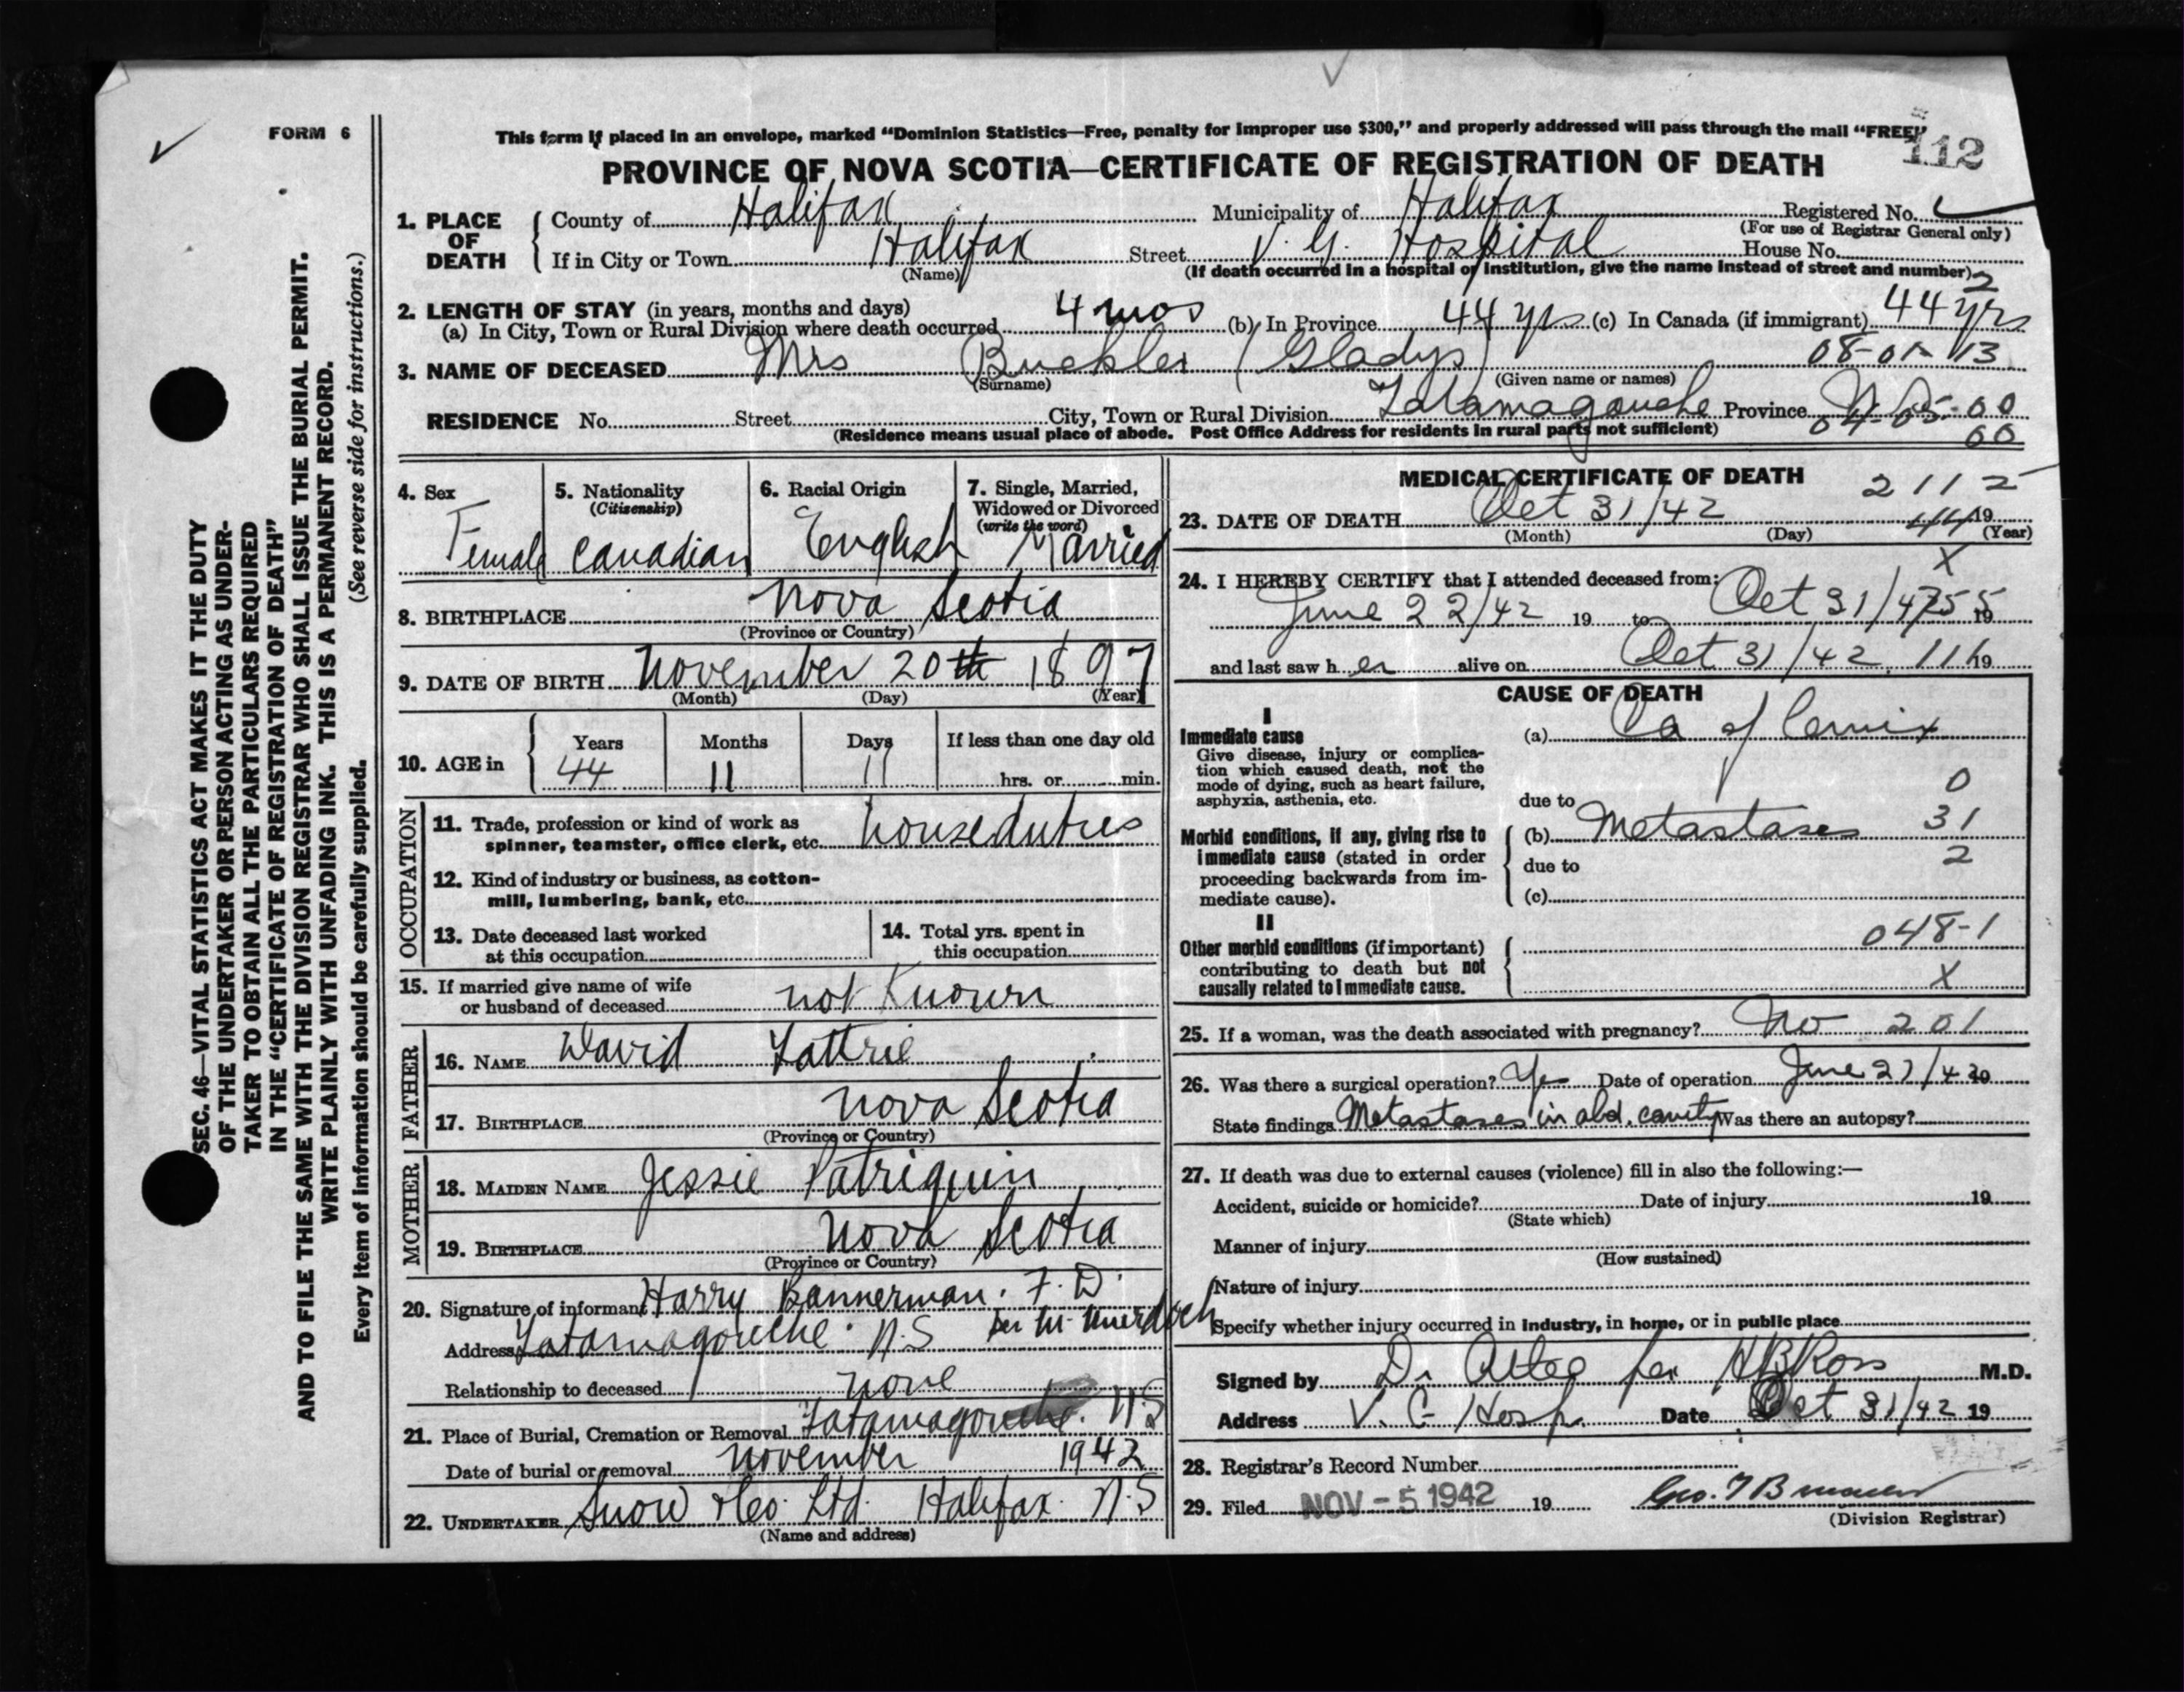 FORM 6
This form if placed in an envelope, marked “Dominion Statistics—Free, penalty for improper use $300,” and properly addressed will pass through the mail “FREE”
112
PROVINCE OF NOVA SCOTIA—CERTIFICATE OF REGISTRATION OF DEATH
1. PLACE OF DEATH County of Halifax Municipality of Halifax Registered No.
(For use of Registrar General only)
If in City or Town Halifax Street V. G. Hospital House No.
(Name) (If death occurred in a hospital or institution, give the name instead of street and number)
2
2. LENGTH OF STAY (in years, months and days)
(a) In City, Town or Rural Division where death occurred 4 mos (b) In Province 44 yrs (c) In Canada (if immigrant) 44 yrs
08-01-13
3. NAME OF DECEASED Mrs Buckler (Gladys)
(Surname) (Given name or names)
RESIDENCE No. Street City, Town or Rural Division Tatamagouche Province N.S.
04-05-00
00
(Residence means usual place of abode. Post Office Address for residents in rural parts not sufficient)
4. Sex Female
5. Nationality (Citizenship) Canadian
6. Racial Origin English
7. Single, Married, Widowed or Divorced (write the word) Married
8. BIRTHPLACE Nova Scotia
(Province or Country)
9. DATE OF BIRTH November 20th 1897
(Month) (Day) (Year)
10. AGE in Years 44 Months 11 Days 11 If less than one day old hrs. or min.
OCCUPATION
11. Trade, profession or kind of work as spinner, teamster, office clerk, etc. houseduties
12. Kind of industry or business, as cotton-mill, lumbering, bank, etc.
13. Date deceased last worked at this occupation
14. Total yrs. spent in this occupation
15. If married give name of wife or husband of deceased not Known
FATHER
16. NAME David Tattrie
17. BIRTHPLACE Nova Scotia
(Province or Country)
MOTHER
18. MAIDEN NAME Jessie Patriquin
19. BIRTHPLACE Nova Scotia
(Province or Country)
20. Signature of informant Harry Bannerman. F. D.
per Murdoch
Address Tatamagouche N.S
Relationship to deceased none
21. Place of Burial, Cremation or Removal Tatamagouche. N.S
Date of burial or removal November 1942
22. UNDERTAKER Snow & Co. Ltd. Halifax N.S
(Name and address)
MEDICAL CERTIFICATE OF DEATH
2112
23. DATE OF DEATH Oct 31/42 44 19
(Month) (Day) (Year)
X
24. I HEREBY CERTIFY that I attended deceased from:
June 22/42 19 to Oct 31/42 19
and last saw her alive on Oct 31/42 116 19
CAUSE OF DEATH
I
Immediate cause
Give disease, injury or complication which caused death, not the mode of dying, such as heart failure, asphyxia, asthenia, etc.
(a) Ca of Cervix
0
due to
Morbid conditions, if any, giving rise to immediate cause (stated in order proceeding backwards from immediate cause).
(b) Metastases 31
due to 2
(c)
II
Other morbid conditions (if important) contributing to death but not causally related to immediate cause.
048-1
X
25. If a woman, was the death associated with pregnancy? No 201
26. Was there a surgical operation? Yes Date of operation June 27/42 19
State findings Metastases in abd. cavity Was there an autopsy?
27. If death was due to external causes (violence) fill in also the following:—
Accident, suicide or homicide? Date of injury 19
(State which)
Manner of injury
(How sustained)
Nature of injury
Specify whether injury occurred in industry, in home, or in public place
Signed by Dr Atlee per HBRoss M.D.
Address V. G Hosp. Date Oct 31/42 19
28. Registrar's Record Number
29. Filed NOV - 5 1942 19 Geo.
(Division Registrar)
SEC. 46—VITAL STATISTICS ACT MAKES IT THE DUTY
OF THE UNDERTAKER OR PERSON ACTING AS UNDER-
TAKER TO OBTAIN ALL THE PARTICULARS REQUIRED
IN THE “CERTIFICATE OF REGISTRATION OF DEATH”
AND TO FILE THE SAME WITH THE DIVISION REGISTRAR WHO SHALL ISSUE THE BURIAL PERMIT.
WRITE PLAINLY WITH UNFADING INK. THIS IS A PERMANENT RECORD.
Every item of information should be carefully supplied. (See reverse side for instructions.)